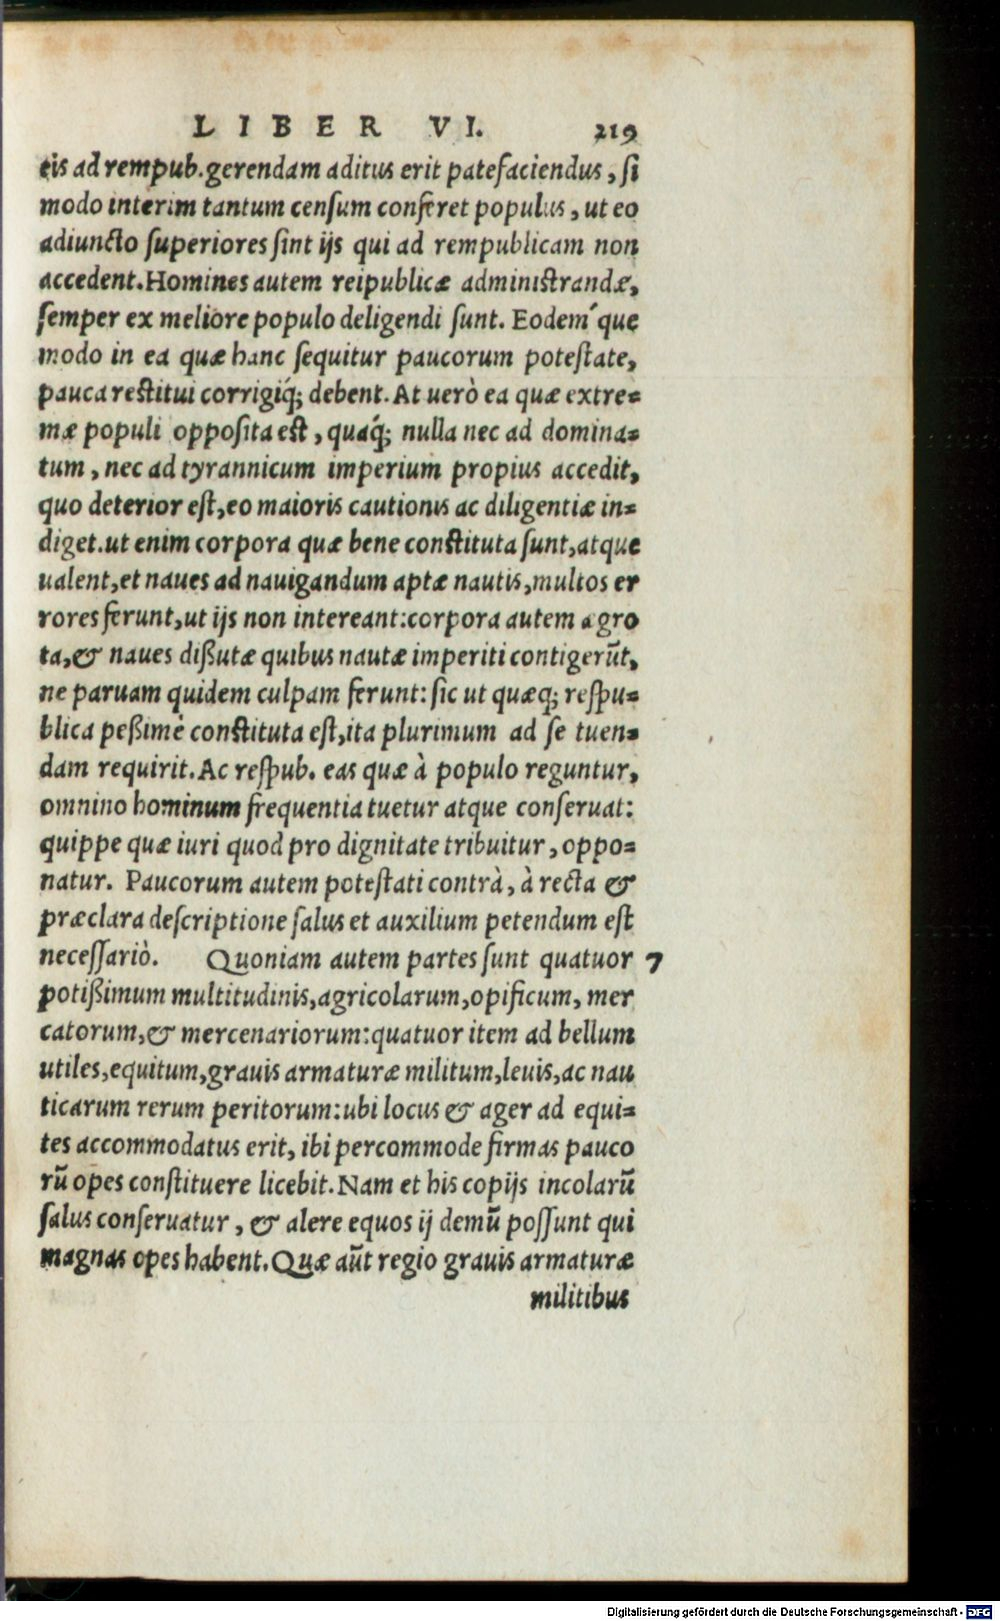 LIBER VI. 219
tis ad rempub. gerendam aditus erit patefaciendus, si
modo interim tantum censum conferet populus, ut eo
adiuncto superiores sint ijs qui ad rempublicam non
accedent. Homines autem reipublicæ administrandæ,
semper ex meliore populo deligendi sunt. Eodem´que
modo in ea quæ hanc sequitur paucorum potestate,
pauca restitui corrigiq́; debent. At uerò ea quæ extre-
mæ populi opposita est, quaq́; nulla nec ad domina-
tum, nec ad tyrannicum imperium propius accedit,
quo deterior est, eo maioris cautionis ac diligentiæ in-
diget. ut enim corpora quæ bene constituta sunt, atque
ualent, et naues ad nauigandum aptæ nautis, multos er
rores ferunt, ut ijs non intereant: corpora autem ægro
ta, & naues dißutæ quibus nautæ imperiti contigerūt,
ne paruam quidem culpam ferunt: sic ut quæq; respu-
blica peßimè constituta est, ita plurimum ad se tuen-
dam requirit. Ac respub. eas quæ à populo reguntur,
omnino hominum frequentia tuetur atque conseruat:
quippe quæ iuri quod pro dignitate tribuitur, oppo-
natur. Paucorum autem potestati contrà, à recta &
præclara descriptione salus et auxilium petendum est
necessariò. Quoniam autem partes sunt quatuor 7
potißimum multitudinis, agricolarum, opificum, mer
catorum, & mercenariorum: quatuor item ad bellum
utiles, equitum, grauis armaturæ militum, leuis, ac nau
ticarum rerum peritorum: ubi locus & ager ad equi-
tes accommodatus erit, ibi percommode firmas pauco
rū opes constituere licebit. Nam et his copijs incolarū
salus conseruatur, & alere equos ij demū possunt qui
magnas opes habent. Quæ aūt regio grauis armaturæ
militibus
Digitalisierung gefördert durch die Deutsche Forschungsgemeinschaft - DFG